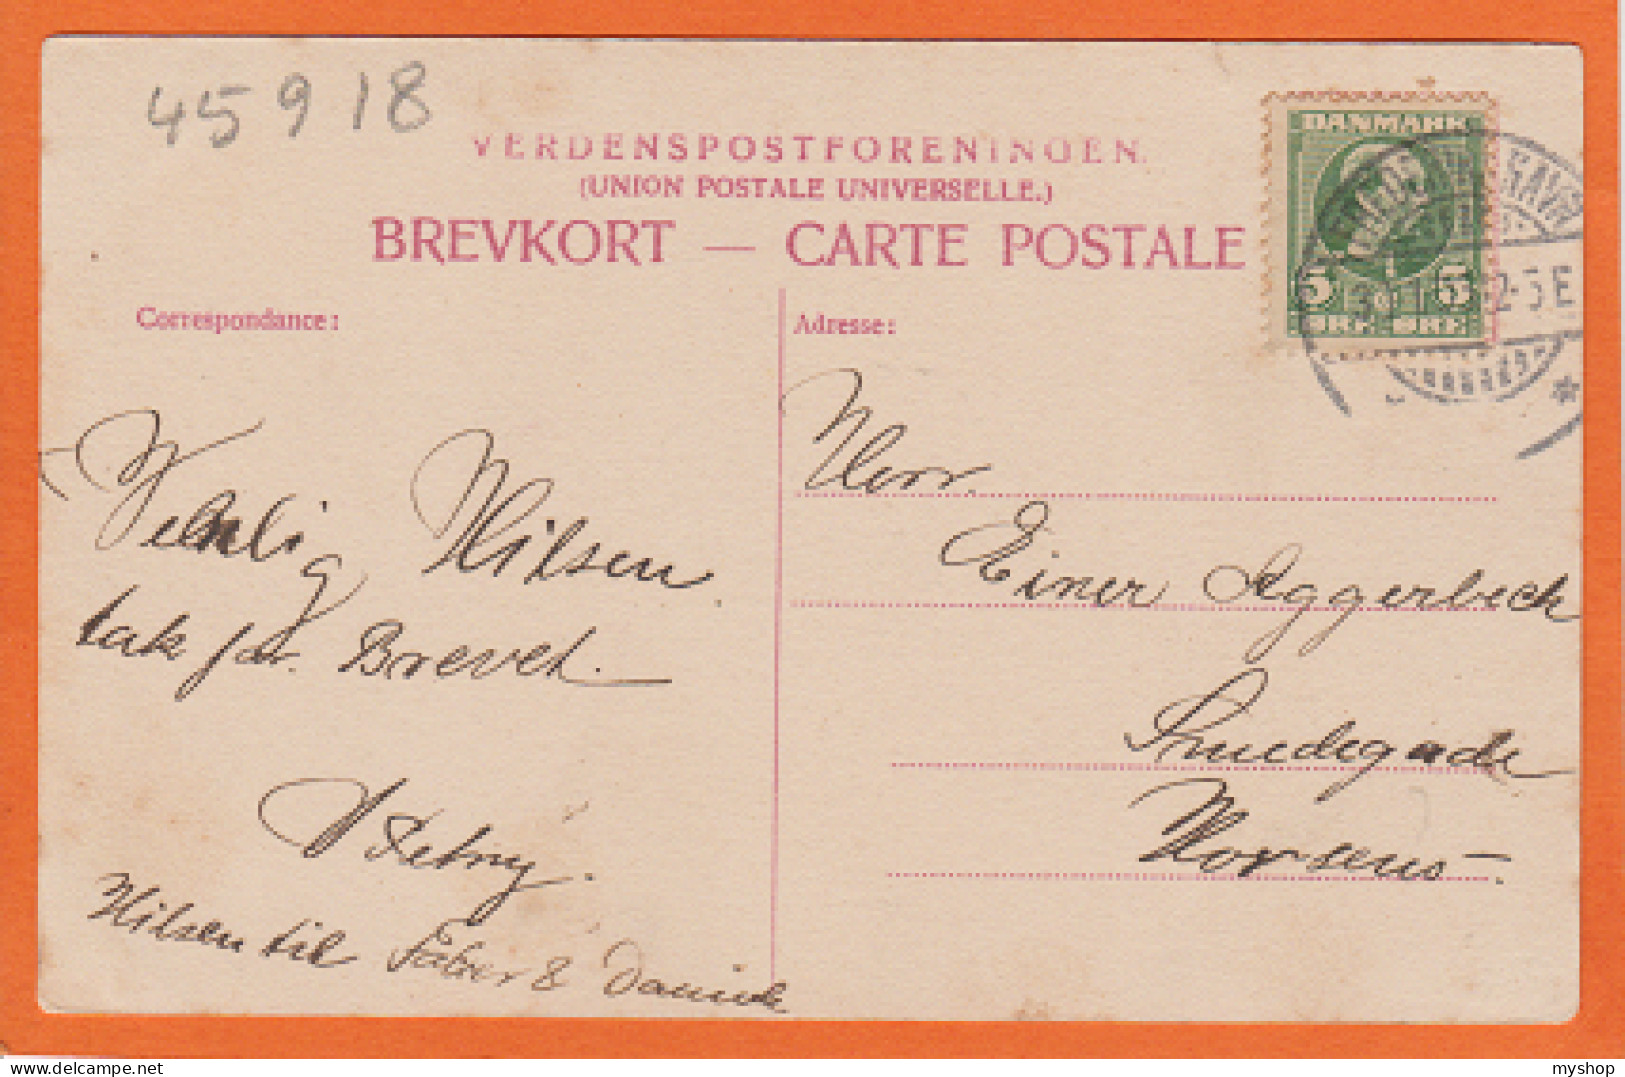 45918
VERDENSPOSTFORENINGEN.
(UNION POSTALE UNIVERSELLE.)
BREVKORT — CARTE POSTALE
DANMARK
5 5
ØRE ØRE
2-5E
Correspondance:
Venlig Hilsen
tak for Brevet.
Hilsen til Faber &
Adresse:
Herr.
Einer Aggerbeck
Smedegade
Horsens.
delcampe.net
myshop